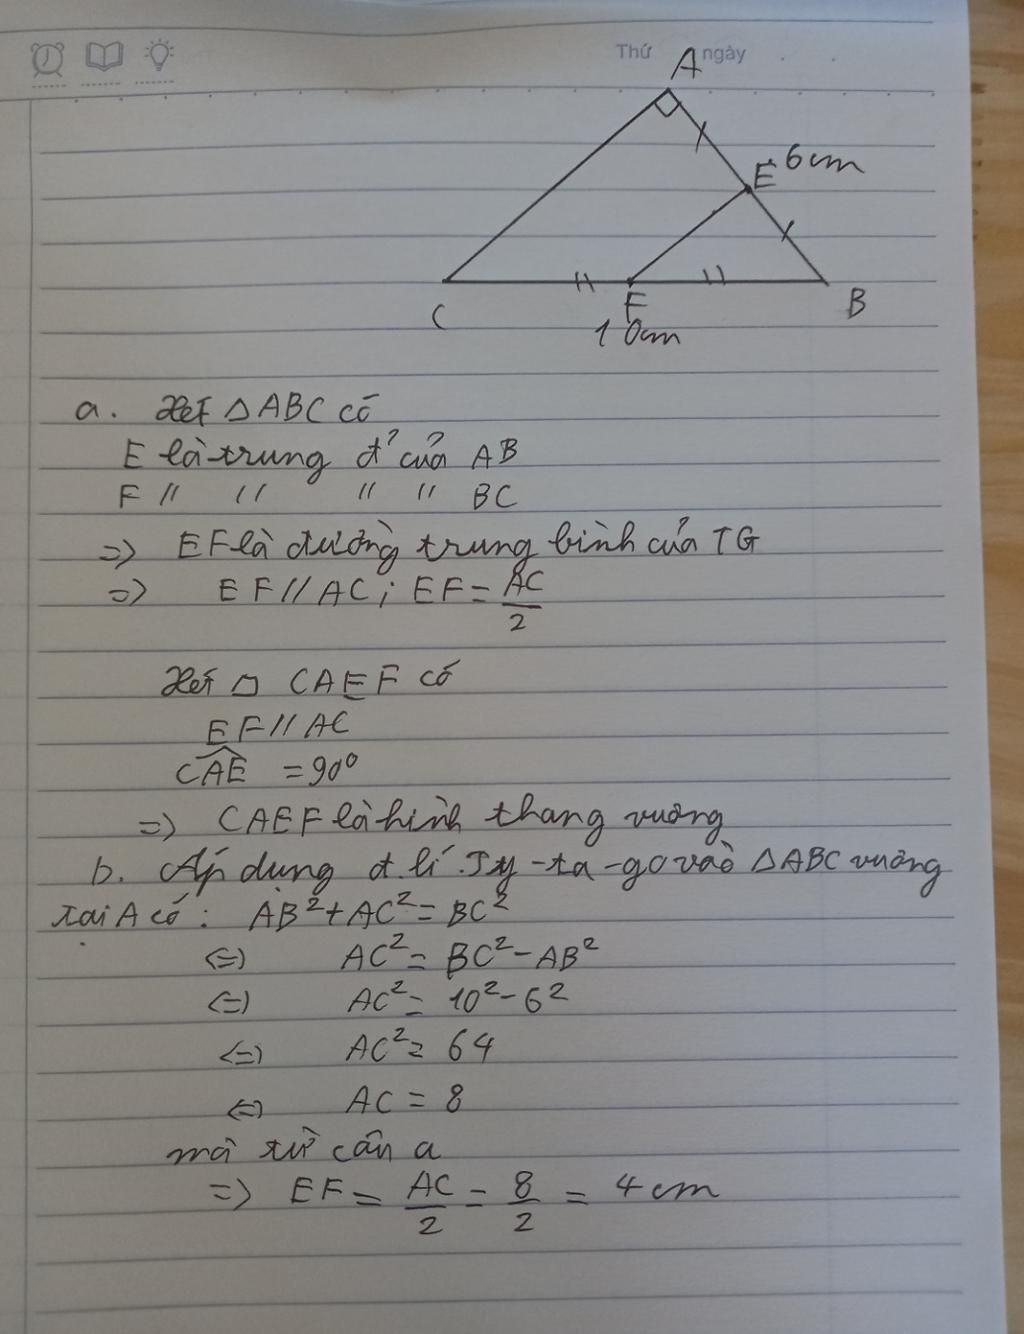 Thứ ngày
A
E 6cm
C F B
10cm
a. Xét △ABC có
E là trung đ' của AB
F // // // // BC
=> EF là đường trung bình của TG
=> EF // AC ; EF = AC/2
Xét □ CAEF có
EF // AC
CAE = 90°
=> CAEF là hình thang vuông
b. Áp dụng đ.lí Py-ta-go vào △ABC vuông
tại A có: AB² + AC² = BC²
<=> AC² = BC² - AB²
<=> AC² = 10² - 6²
<=> AC² = 64
<=> AC = 8
mà từ câu a
=> EF = AC/2 = 8/2 = 4 cm